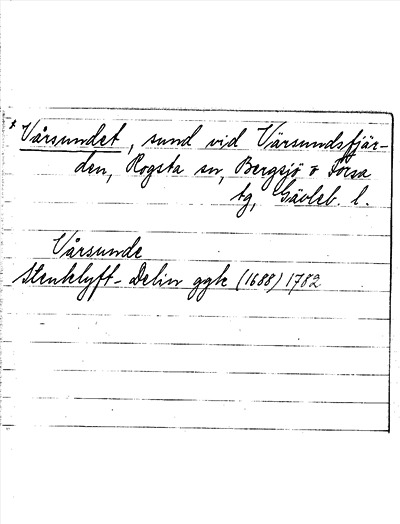 * Vårsundet, sund vid Vårsundsfjär-
den, Rogsta sn, Bergsjö o Forsa
tg, Gävleb. l.
Vårsunde
Stenklyft- Delin ggk (1688) 1782